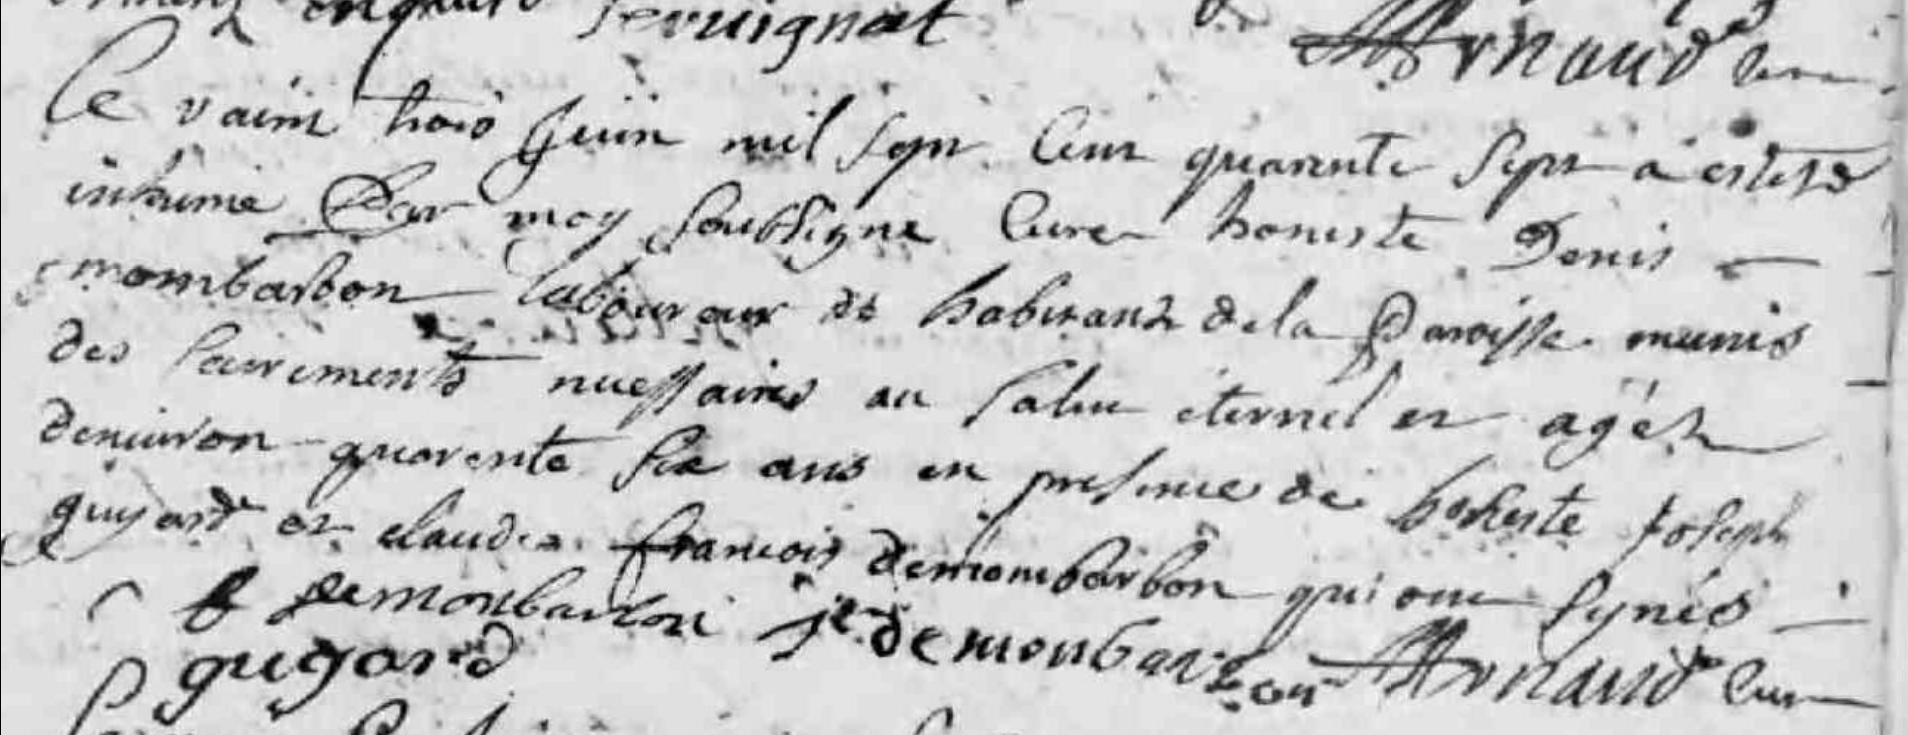 Servignat Arnaud Cure
Le vaint trois Juin mil sept Cent quarente Sept a estesté
inhumé Par moy soubsigne Cure honeste Denis
mombarbon laboureur et habitant de la Paroisse munis
des Sairements necessaires au salut éternel et agéz
denviron quarente six ans en presence de honeste Joseph
guyard et claude francois demombarbon qui ont synés
demonbarbon demonbarbon Arnaud Cure
gugard